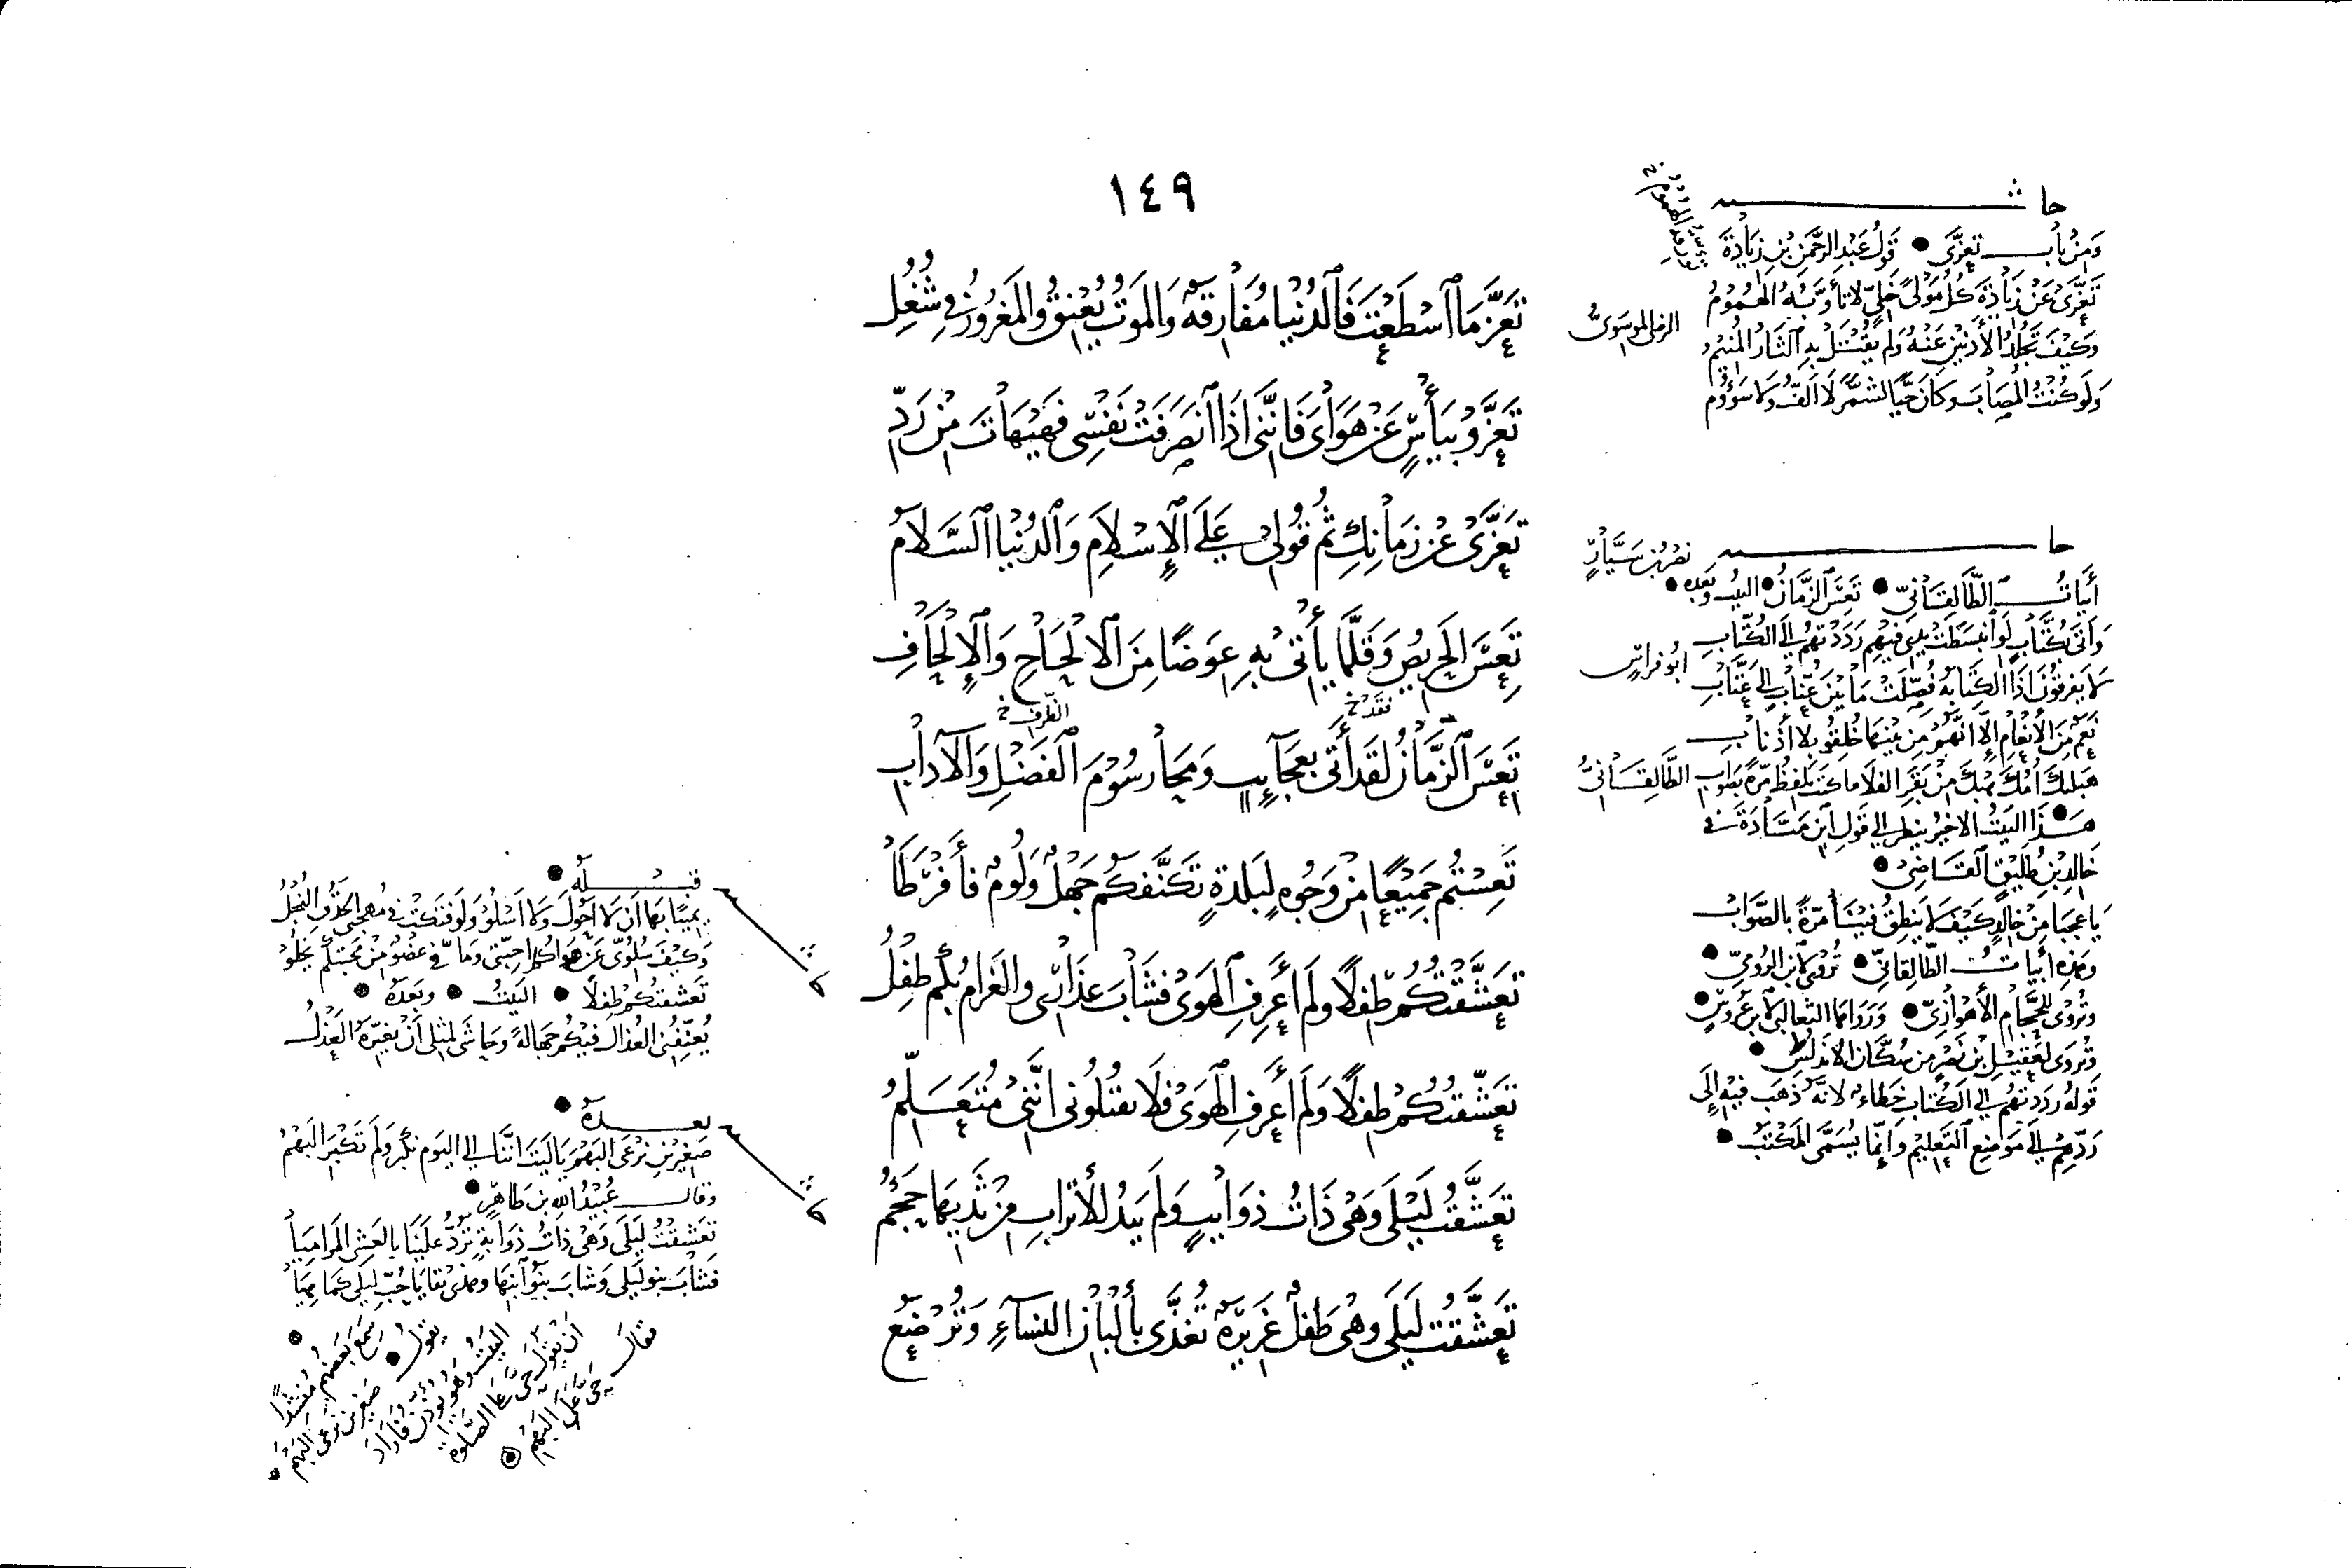 ١٤٩
تَعَزَّ مَا ٱسْطَعْتَ فَٱلدُّنْيَا مُفَارِقَةٌ وَالمَوْتُ يُعْنِقُ وَالمَغْرُورُ فِي شُغُلِ
تَعَزَّوْ بِيَأْسٍ عَنْ هَوَاىَ فَإِنَّنِي إِذَا ٱنصَرَفَتْ نَفْسِي فَهَيْهَاتَ مِنْ رَدِّ
تَعَزَّىْ عَنْ زَمَانِكِ ثُمَّ قُولِي عَلَى ٱلْإِسْلَامِ وَٱلدُّنْيَا ٱلسَّلَامُ
تَعِسَ الحَرِيصُ وَقَلَّمَا يَأْتِي بِهِ عِوَضًا مِنَ ٱلْإِلْحَاحِ وَٱلْإِلْحَافِ
فَقَدْ خ الظَّرف خ
تَعِسَ ٱلزَّمَانُ لَقَدْ أَتَى بِعَجَآئِبٍ وَمَحَا رُسُوْمَ ٱلْفَضْلِ وَٱلْآدَابِ
تَعِسْتُم جَمِيْعًا مِنْ وُجُوهٍ لِبَلْدَةٍ تَكَنَّفَكُمْ جَهْلٌ وَلُومٌ فَأَفْرَطَا
تَعَشَّقْتُكُمْ طِفْلًا وَلَمْ أَعْرِفِ ٱلْهَوَىْ فَشَابَ عِذَارِى وَالغَرَامُ بِكُمْ طِفْلُ
تَعَشَّقْتُكُمْ طِفْلًا وَلَمْ أَعْرِفِ ٱلْهَوَىْ فَلَا تَقْتُلُونِي إِنَّنِيْ مُتَعَلِّمُ
تَعَشَّقْتُ لَيْلَى وَهْيَ ذَاتُ ذَوَائِبٍ وَلَمْ يَبْدُ لِلْأَتْرَابِ مِنْ ثَدْيِهَا حَجْمُ
تَعَشَّقْتُ لَيْلَى وَهْيَ طِفْلٌ غَرِيْرَةٌ تُغَذَّى بِأَلْبَانِ النِّسَآءِ وَتُرْضَعُ
حاشيه
وَمِنْ بَابِ تَعَزَّى • قَوْلُ عَبْدِ الرَّحْمَنِ بْنِ زِيَادَةَ
تَعَزَّىْ عَنْ زِيَادَةَ كُلُّ مَوْلًى خَلِيٍّ لَا تَأَوَّبُهُ الْهُمُوْمُ
وَكَيْفَ تَجَلُّدُ الأَدْنَيْنِ عَنْهُ وَلَمْ يُقْتَلْ بِهِ ٱلثَّارُ المُنِيْمُ
وَلَوْ كُنْتُ المُصَابَ وَكَانَ حَيًّا لَشَمَّرَ لَا أَلَفُّ وَلَا سَؤُوْمُ
الرضي الموسَوِيُّ
نَصْرُ بْنُ سَيَّارٍ
ابُو فراسٍ
الطَّالِقَانِيُّ
حا
أَبْيَاتُ الطَّالِقَانِيِّ • تَعِسَ ٱلزَّمَانُ • البيت وبعده •
وَأَتَى بِكُتَّابٍ لَوِ ٱنْبَسَطَتْ يَدِي فِيْهِمْ رَدَدْتُهُمُ إِلَى الكُتَّابِ
لَا يَعْرِفُوْنَ إِذَا الْكِتَابَةُ فُصِّلَتْ مَا بَيْنَ عَتَّابٍ إِلَى عَتَّابِ
نَعَمٌ مِنَ الأَنْعَامِ إِلَّا أَنَّهُمْ مِنْ بَيْنِهَا خُلِقُو بِلَا أَذْنَابِ
هَبَلَتْكَ أُمُّكَ هَبْكَ مِنْ بَقَرِ الفَلَا مَا كُنْتَ تَلْفِظُ مَرَّةً بِصَوَابِ
هَذَا البَيْتُ الأَخِيْرُ يَنْظُرُ إِلَى قَوْلِ ابْنِ مَنَاذِرَ فِي
خَالِدِ بْنِ طُلَيْقٍ ٱلْقَاضِيْ •
يَا عَجَبًا مِنْ خَالِدٍ كَيْفَ لَا يَنْطِقُ فِيْنَا مَرَّةً بِالصَّوَابْ
وَهَذِهِ أَبْيَاتُ الطَّالِقَانِيِّ • تُرْوَى لِابْنِ الرُّوْمِيِّ •
وَتُرْوَى لِلْحَجَّامِ الأَهْوَازِيِّ • وَرَوَاهَا الثَّعَالِبِيُّ لِابْنِ عَرُوْسٍ •
وَتُرْوَى لِعَقِيْلِ بْنِ نَصْرٍ مِنْ سُكَّانِ الأَنْدَلُسِ •
قَوْلُهُ رَدَدْتُهُمْ إِلَى الكُتَّابِ خَطَاءٌ لِأَنَّهُ ذَهَبَ فِيْهِ إِلَى
رَدِّهِمْ إِلَى مَوْضِعِ ٱلتَّعْلِيْمِ وَإِنَّمَا يُسَمَّى المَكْتَبُ •
قَبْلَهُ •
يَمِيْنًا بِكُمْ أَنْ لَا أَحُوْلَ وَلَا أَسْلُوْ وَلَوْ فَتَكَتْ فِي مُهْجَتِي الحَدَقُ النُّجْلُ
وَكَيْفَ سُلُوِّى عَنْ هَوَاكُمْ أَحِبَّتِي وَمَا فِيَّ عُضْوٌ مِنْ مَحَبَّتِكُمْ يَخْلُوْ
تَعَشَّقْتُكُمْ طِفْلًا • البَيْتُ • وَبَعْدَهُ •
يُعَنِّفُنِي العُذَّالُ فِيْكُمْ جَهَالَةً وَحَاشَى لِمِثْلِي أَنْ يُغَيِّرَهُ العَذْلُ
بَعْدَهُ •
صَغِيْرَيْنِ نَرْعَى البَهْمَ يَا لَيْتَ أَنَّنَا إِلَى اليَوْمِ لَمْ نَكْبَرْ وَلَمْ تَكْبَرِ البَهْمُ
وَقَالَ عُبَيْدُ اللهِ بْنُ طَاهِرٍ •
تَعَشَّقْتُ لَيْلَى وَهْيَ ذَاتُ ذُوَابَةٍ تَرُدُّ عَلَيْنَا بِالعَشِيِّ المَرَامِيَا
فَشَابَ بَنُو لَيْلَى وَشَابَ بَنُو ٱبْنِهَا وَهَذِى بَقَايَا حُبِّ لَيْلَى كَمَا هِيَا
سَمِعَ بَعْضُهُمْ مُنْشِدًا
يَقُوْلُ • صَغِيْرَيْنِ نَرْعَى البَهْمَ •
البَيْتُ وَهُوَ يُؤَذِّنُ فَأَرَادَ
أَنْ يَقُوْلَ حَيَّ عَلَى الصَّلَوةِ
فَقَالَ حَيَّ عَلَى البَهْمِ